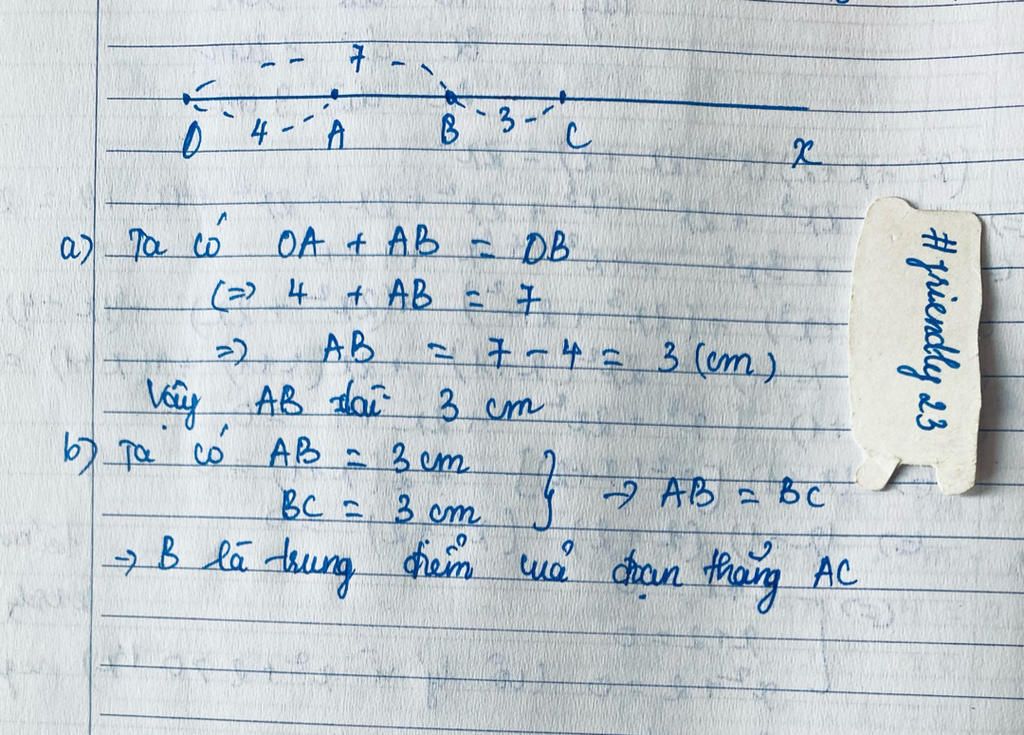 7
4
3
O A B C x
a) Ta có OA + AB = OB
(=> 4 + AB = 7
=> AB = 7 - 4 = 3 (cm)
Vậy AB dài 3 cm
b) Ta có AB = 3 cm
BC = 3 cm } → AB = BC
→ B là trung điểm của đoạn thẳng AC
#friendly23